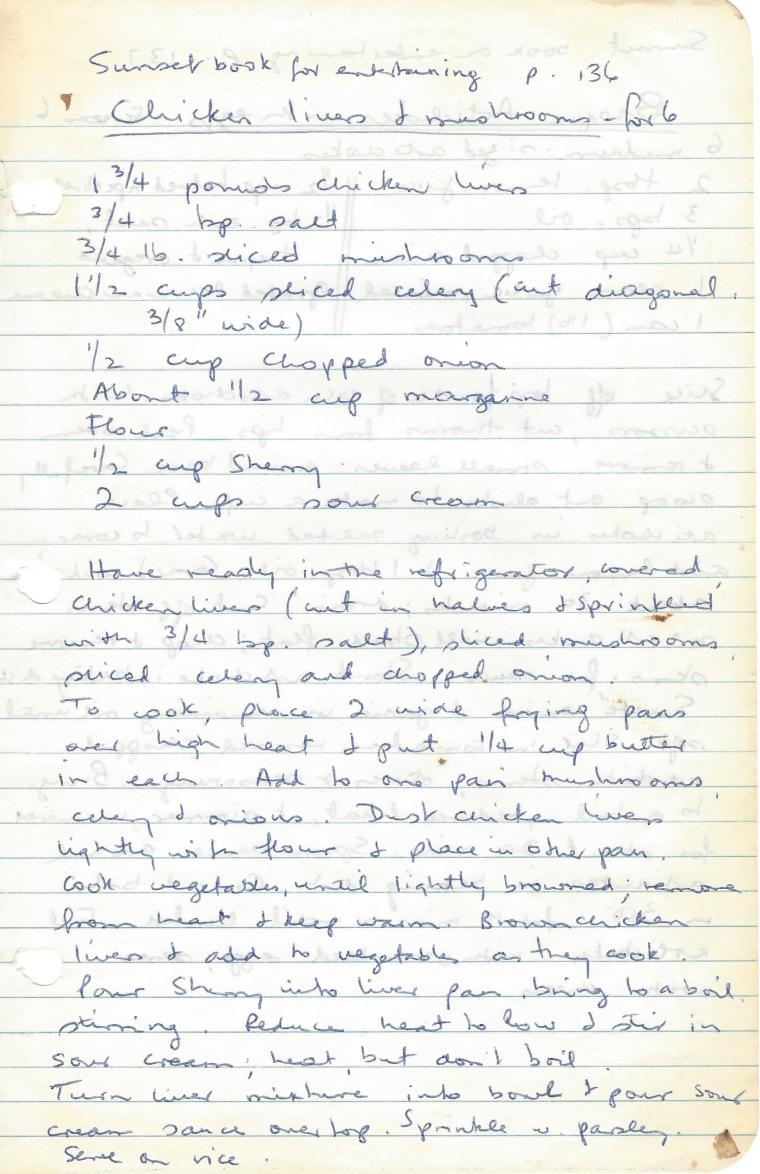 Sunset book for entertaining p. 136
Chicken livers & mushrooms - for 6
1 3/4 pounds chicken livers
3/4 tsp. salt
3/4 lb. sliced mushrooms
1 1/2 cups sliced celery (cut diagonal.
3/8" wide)
1/2 cup chopped onion
About 1/2 cup margarine
Flour
1/2 cup Sherry
2 cups sour cream
Have ready in the refrigerator, covered,
chicken livers (cut in halves & sprinkled
with 3/4 tsp. salt), sliced mushrooms,
sliced celery and chopped onion.
To cook, place 2 wide frying pans
over high heat & put 1/4 cup butter
in each. Add to one pan mushrooms,
celery & onions. Dust chicken livers
lightly with flour & place in other pan.
Cook vegetables, until lightly browned; remove
from heat & keep warm. Brown chicken
livers & add to vegetables as they cook.
Pour Sherry into liver pan, bring to a boil,
stirring. Reduce heat to low & stir in
sour cream; heat, but don't boil.
Turn liver mixture into bowl & pour sour
cream sauce over top. Sprinkle w. parsley.
Serve on rice.